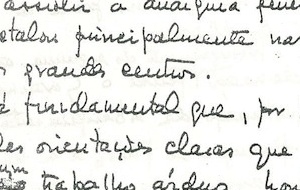 assistir a anarquia
principalmente na
grandes centros.
é fundamental que, por
orientações claras que
trabalho árduo, hon